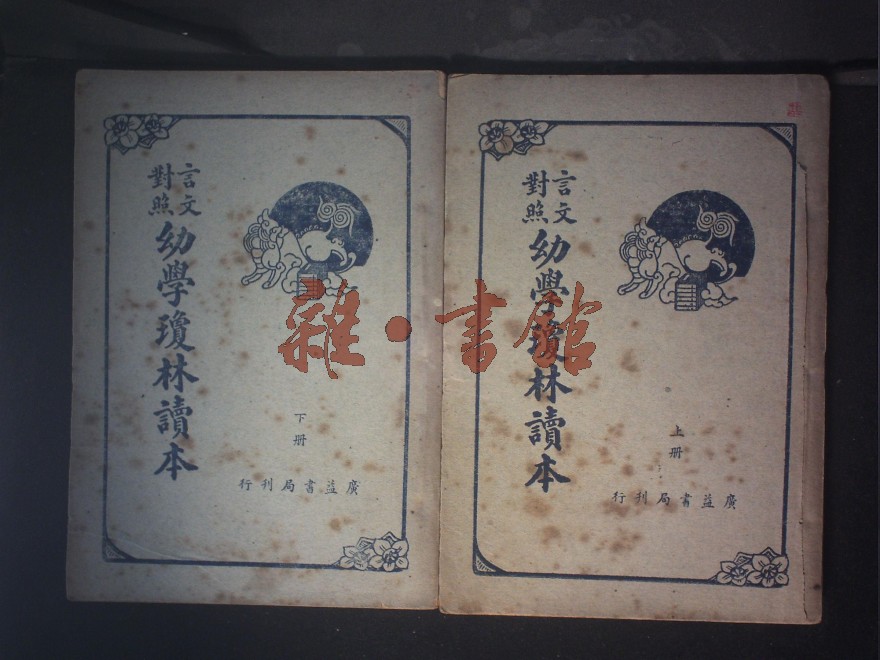 言文
對照
幼學瓊林讀本
上册
廣益書局刊行
言文
對照
幼學瓊林讀本
下册
廣益書局刊行
雜·書館